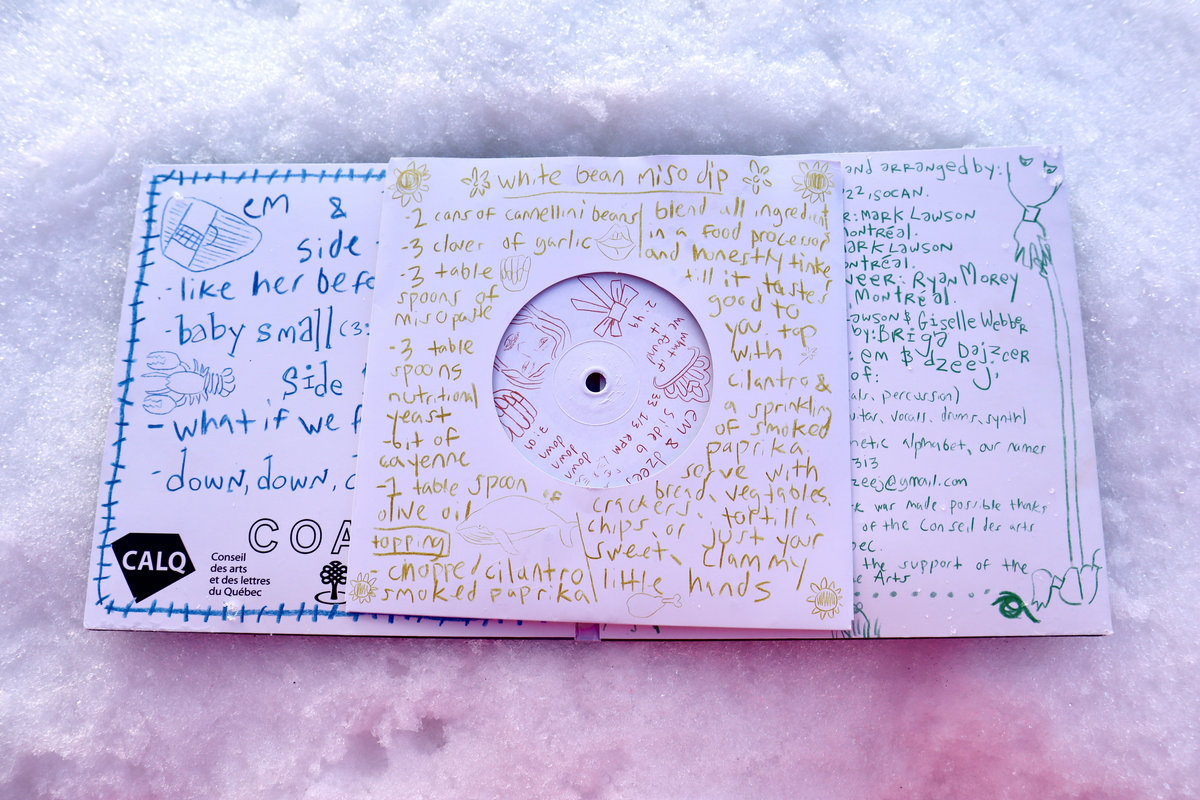 em &
side
- like her befo
- baby small (3:
side
- what if we f
- down, down, d
COA
CALQ
Conseil
des arts
et des lettres
du Québec
white bean miso dip
-2 cans of camellini beans
-3 clover of garlic
-3 table
spoons of
miso paste
-3 table
spoons
nutritional
yeast
-bit of
cayenne
-1 table spoon
olive oil
topping
- chopped cilantro
smoked paprika
blend all ingredient
in a food processor
and honestly tinker
till it tastes
good to
you. top
with
cilantro &
a sprinkling
of smoked
paprika.
serve with
bread, vegtables,
crackers, tortilla
chips, or just your
sweet, clammy
little hands
what if
we f
2:49
em & dzeej
side b
33 1/3 RPM
down
down
down
and arranged by:
22, SOCAN.
R: Mark Lawson
ontréal.
Mark Lawson
ontréal.
neer: Ryan Morey
Montréal.
Lawson & Giselle Webber
by: Briga Dajzcer
: em & dzeej,
of:
als, percussion)
uitar, vocals, drums, synth)
netic alphabet, our names
313
zeej@gmail.com
k was made possible thanks
of the Conseil des arts
bec.
the support of the
e Arts